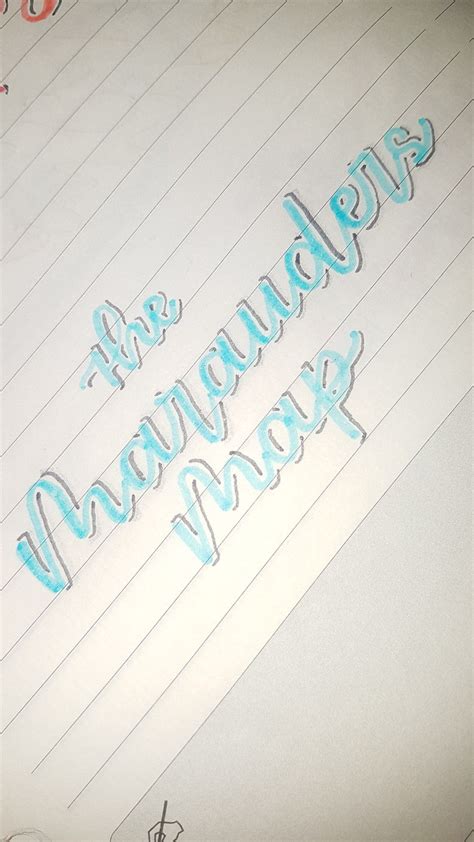 the
Marauders
Map